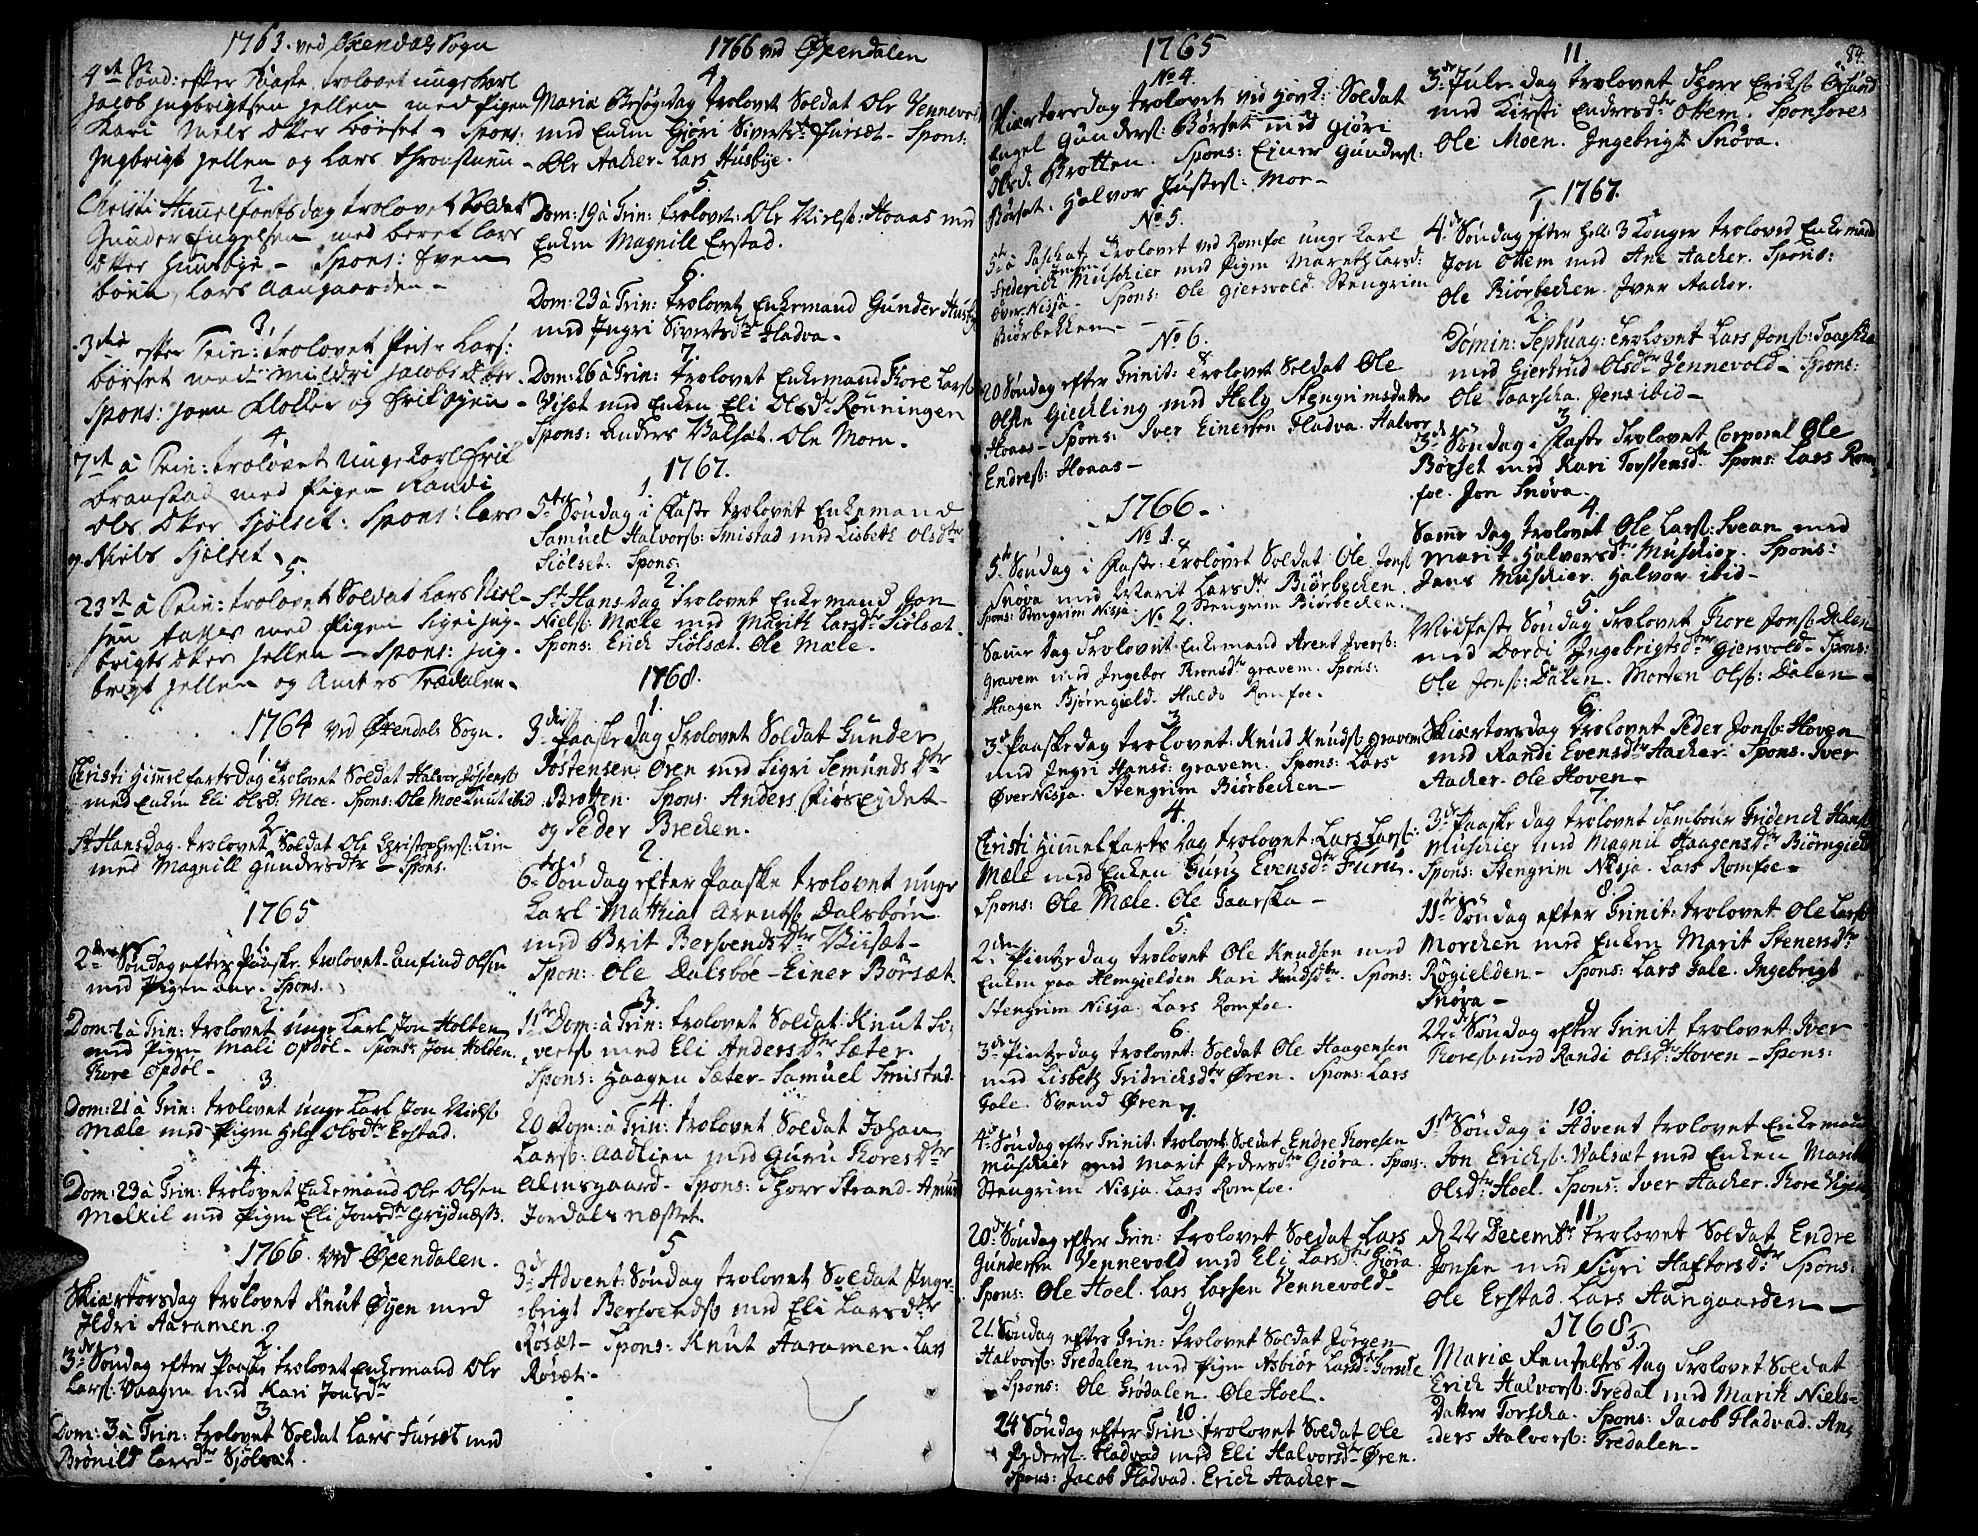 1763. ved Øxendals Sogn
4de Sønd: efter Paaske, trolovet unge Karl
Jacob Ingbrigtsen Jellen med Pigen
Kari Niels Dtter Børset - Spons:
Ingbrigt Jellen og Lars
2.
Christi Himelfartsdag trolovet Soldat
Gunder Engelsen med Beret Lars
Dtter Huusbye - Spons: Sven
Lars Aangaarden -
3.
3die efter Trin: trolovet Peter Lars:
børset med Mildri Jacobs Dtter
Spons: Joen Klokker og Erik Øyen -
4.
7de à Trin: trolovet Unge Karl Erik
Branstad med Pigen Randi
Ols Dtter Sjölset: Spons: Lars
og Niels Sjølset
5.
23de à Trin: trolovet Soldat Lars Niel-
sen med Pigen Sigri Ing-
brigts Dtter Jellen - Spons: Ing-
brigt Jellen og Anders Trædalen.
1764 ved Øxendals Sogn.
1.
Christi Himmelfartsdag trolovet Soldat Halvor
med Enken Eli Olsd: Moe. Spons: Ole Moe Knut ibid
2.
St Hansdag trolovet Soldat Ole Christophers: Lim
med Magnill Gundersdtr - Spons.
1765
1.
2den Søndag efter Paaske trolovet Anfind Olsen
med Pigen Spons.
2.
Dom: 1 à Trin: trolovet unge Karl Jon Holten
med Pigen Mali Opdøl - Spons: Jon Holten.
Thore Opdøl -
3.
Dom: 21 à Trin: trolovet unge Karl Jon Nielsß
Mæle med Pigen Helge Olsdtr Erstad.
4.
Dom: 23 à Trin: trolovet Enkemand Ole Olsen
Melkil med Pigen Eli Jonsdtr Grydnæss.
1766. ved Øxendalen.
1
Skiærtorsdag trolovet Knut Øyen med
Ildri Aaramen.
2
3de Søndag efter Paaske trolovet Enkemand Ole
Larsß: Vaagen med Kari Jonsdtr
3
Dom: 3 à Trin: trolovet Soldat Lars Fursæt med
Brønild Larsdtr Sjølsæt.
1766 ved Øxendalen
4
Mariæ Besøg: dag trolovet Soldat Ole Vennevold
med Enken Gjøri Sivertsdtr Fursæt - Spons:
Ole Aacher - Lars Husbye.
5.
Dom: 19 à Trin: trolovet: Ole Nielsß: Hoaas med
Enken Magnill Erstad.
6.
Dom: 23 à Trin: trolovet Enkemand Gunder Husby
med Ingri Sivertsdtr Fladva.
7.
Dom: 26 à Trin: trolovet Enkemand Thore Larsß
Visæt med Enken Eli Olsdtr Rønningen
Spons: Anders Valsæt. Ole Moen.
1767.
1.
5te Søndag i Faste trolovet Enkemand
Samuel Halvorsß: Smistad med Lisbeth Olsdtr
Siölset: Spons:
2
St Hansdag trolovet Enkemand Jon
Nielsß: Mæle med Marith Larsdtr Siölsæt.
Spons: Erich Siölsæt. Ole Mæle.
1768.
1.
3die Paaske Dag trolovet Soldat Gunder
Jostensen Ören med Sigri Semunds Dtr
Brotten. Spons: Anders
og Peder Brechen.
2
6te Søndag efter Paaske trolovet unge
Karl Mathias Arentsß Dalsböen
med Brit Bersvendsdtr Viisæt -
Spon: Ole Dalsböe - Einer Börsæt
3.
11te Dom: à Trin: trolovet Soldat Knut Si-
vertsß med Eli Andersdtr Sæter.
Spons: Haagen Sæter - Samuel Smistad
4.
20 Dom: à Trin: trolovet Soldat Johan
Larsß: Aadlien med Guru Thoresdtr
Almsgaard - Spons: Thore Strand - Amund
Jordalsnæsset.
5
3de Advent: Søndag trolovet Soldat Inge-
brigt Bersvendsß med Eli Larsdtr
Røsæt - Spons: Knut Aaramen. Lars
Røsæt -
1765
No 4.
Skiærtorsdag trolovet ved Hovk: Soldat
Engel Gundersß: Børset med Gjøri
Olsd: Brotten. Spons: Einer Gundersß:
Børset. Halvor Justesß: Mor -
No 5.
5te à Paschat. trolovet ved Romfoe unge Karl
Frederich Muschier med Pigen Mareth Larsd:
Over Nisja - Spons: Ole Giersvold Stengrim
Biørbekken -
No 6.
20 Søndag efter Trinit: trolovet Soldat Ole
Olsen Giechling med Helg Stengrimsdatter
Hoaas - Spons: Iver Einersen Fladva. Halvor
Endresß: Hoaas -
1766.
No 1.
5te Søndag i Faste trolovet Soldat Ole Jonsß
Snøva med Marit Larsdtr Biörbechen
Spons: Stengrim Nisja. Stengrim Biörbechen.
No 2.
Samme Dag trolovet Enkemand Arent Iversß:
Gravem med Ingebor Gravem. Spons:
Haagen Bjørngield. Haldo Romfoe.
3
3die Paaskedag trolovet Knud Knudsß Gravem
med Ingri Hansd: Gravem. Spons: Lars
Øver Nisja. Stengrim Biörbechen -
4.
Christi Himmelfarts Dag trolovet Lars Larsß:
Mæle med Enken Guru Evensdtr Furu.
Spons: Ole Mæle. Ole Gaarska -
5.
2den Pintzedag trolovet Ole Knudsen med
Enken paa Hemgielden Kari Knudsdtr. Spons:
Stengrim Nisja. Lars Romfoe.
6.
3die Pintzedag trolovet Soldat Ole Haagensen
med Lisbeth Fridrichsdtr Øren. Spons: Lars
Fale. Svend Øren.
7.
4de Søndag efter Trinit: trolovet Soldat Endre Thoresen
Muschier med Marit Pedersdtr Giöra. Spons:
Stengrim Nisja. Lars Romfoe.
8
20de Søndag efter Trin: trolovet Soldat Lars
Gundersen Vennevold med Eli Larsdtr Gjøra.
Spons: Ole Hoel. Lars Larsen Vennevold -
9
21. Søndag efter Trin: trolovet Soldat Jørgen
Halvorsß: Tredalen med Pigen Asbiør Larsdtr
Spons: Ole Grödalen. Ole Hoel.
10
24 Søndag efter Trin: trolovet Soldat Ole
Pedersß: Fladvad med Eli Halvorsdtr Øren.
Spons: Jacob Fladvad. Erich Aacher -
84.
11
3die Juledag trolovet Thore Eriksß
med Kirsti Endersdtr Ottem. Sponsores
Ole Moen. Ingebrigt Snöva.
1767.
1
4de Søndag efter hell: 3 Konger troloved Enkemand
Jon Ottem med Ane Aacher. Spons:
Ole Biörbechen. Iver Aacher.
2.
Domin: Septuag: trolovet Lars Jonsß: Taarscha
med Giertrud Olsdtr Vennevold - Spons:
Ole Taarscha. Jens ibid -
3
3die Søndag i Faste trolovet Corporal Ole
Børset med Kari Torstensdtr Spons: Lars Rom
foe. Jon Snöva.
4.
Samme Dag trolovet Ole Larsß: Svean med
Marit Halvorsdtr Muschier. Spons:
Jens Muschier. Halvor ibid -
5.
Midfaste Søndag trolovet Thore Jonsß: Dalen
med Dordi Ingebrigtsdtr Giersvold - Spons:
Ole Jonsß: Dalen. Morten Olsß: Dalen -
6.
Skiærtorsdag trolovet Peder Jonsß: Hoven
med Randi Evensdtr Aacher. Spons: Iver
Aacher. Ole Hoven -
7.
3die Paaske Dag trolovet Tambour Friderich Hans
Muschier med Magnil Haagensdtr Biörngield
Spons: Stengrim Nisja. Lars Romfoe -
8
11te Søndag efter Trinit: trolovet Ole Larsß
Morchen med Enken Marit Stenersdtr
Røgielden - Spons: Lars Fale. Ingebrigt
Snöva -
9
22de Søndag efter Trinit trolovet Iver
Thoresß med Randi Olsdtr Hoven - Spons:
10.
1ste Søndag i Advent trolovet Enkemand
Jon Erichsß: Walsæt med Enken Marit
Olsdtr Hoel. Spons: Iver Aacher. Thore
11.
d 22 Decembr trolovet Soldat Endre
Jonsen med Sigri Haftorsdtr Spons:
Ole Erstad. Lars Aangaarden -
1768
Mariæ Renselses Dag trolovet Soldat
Erich Halvorsß: Tredal med Marith Niels-
Datter Torscha. Spons: Jacob Fladvad. An-
ders Halvorsß: Tredalen -